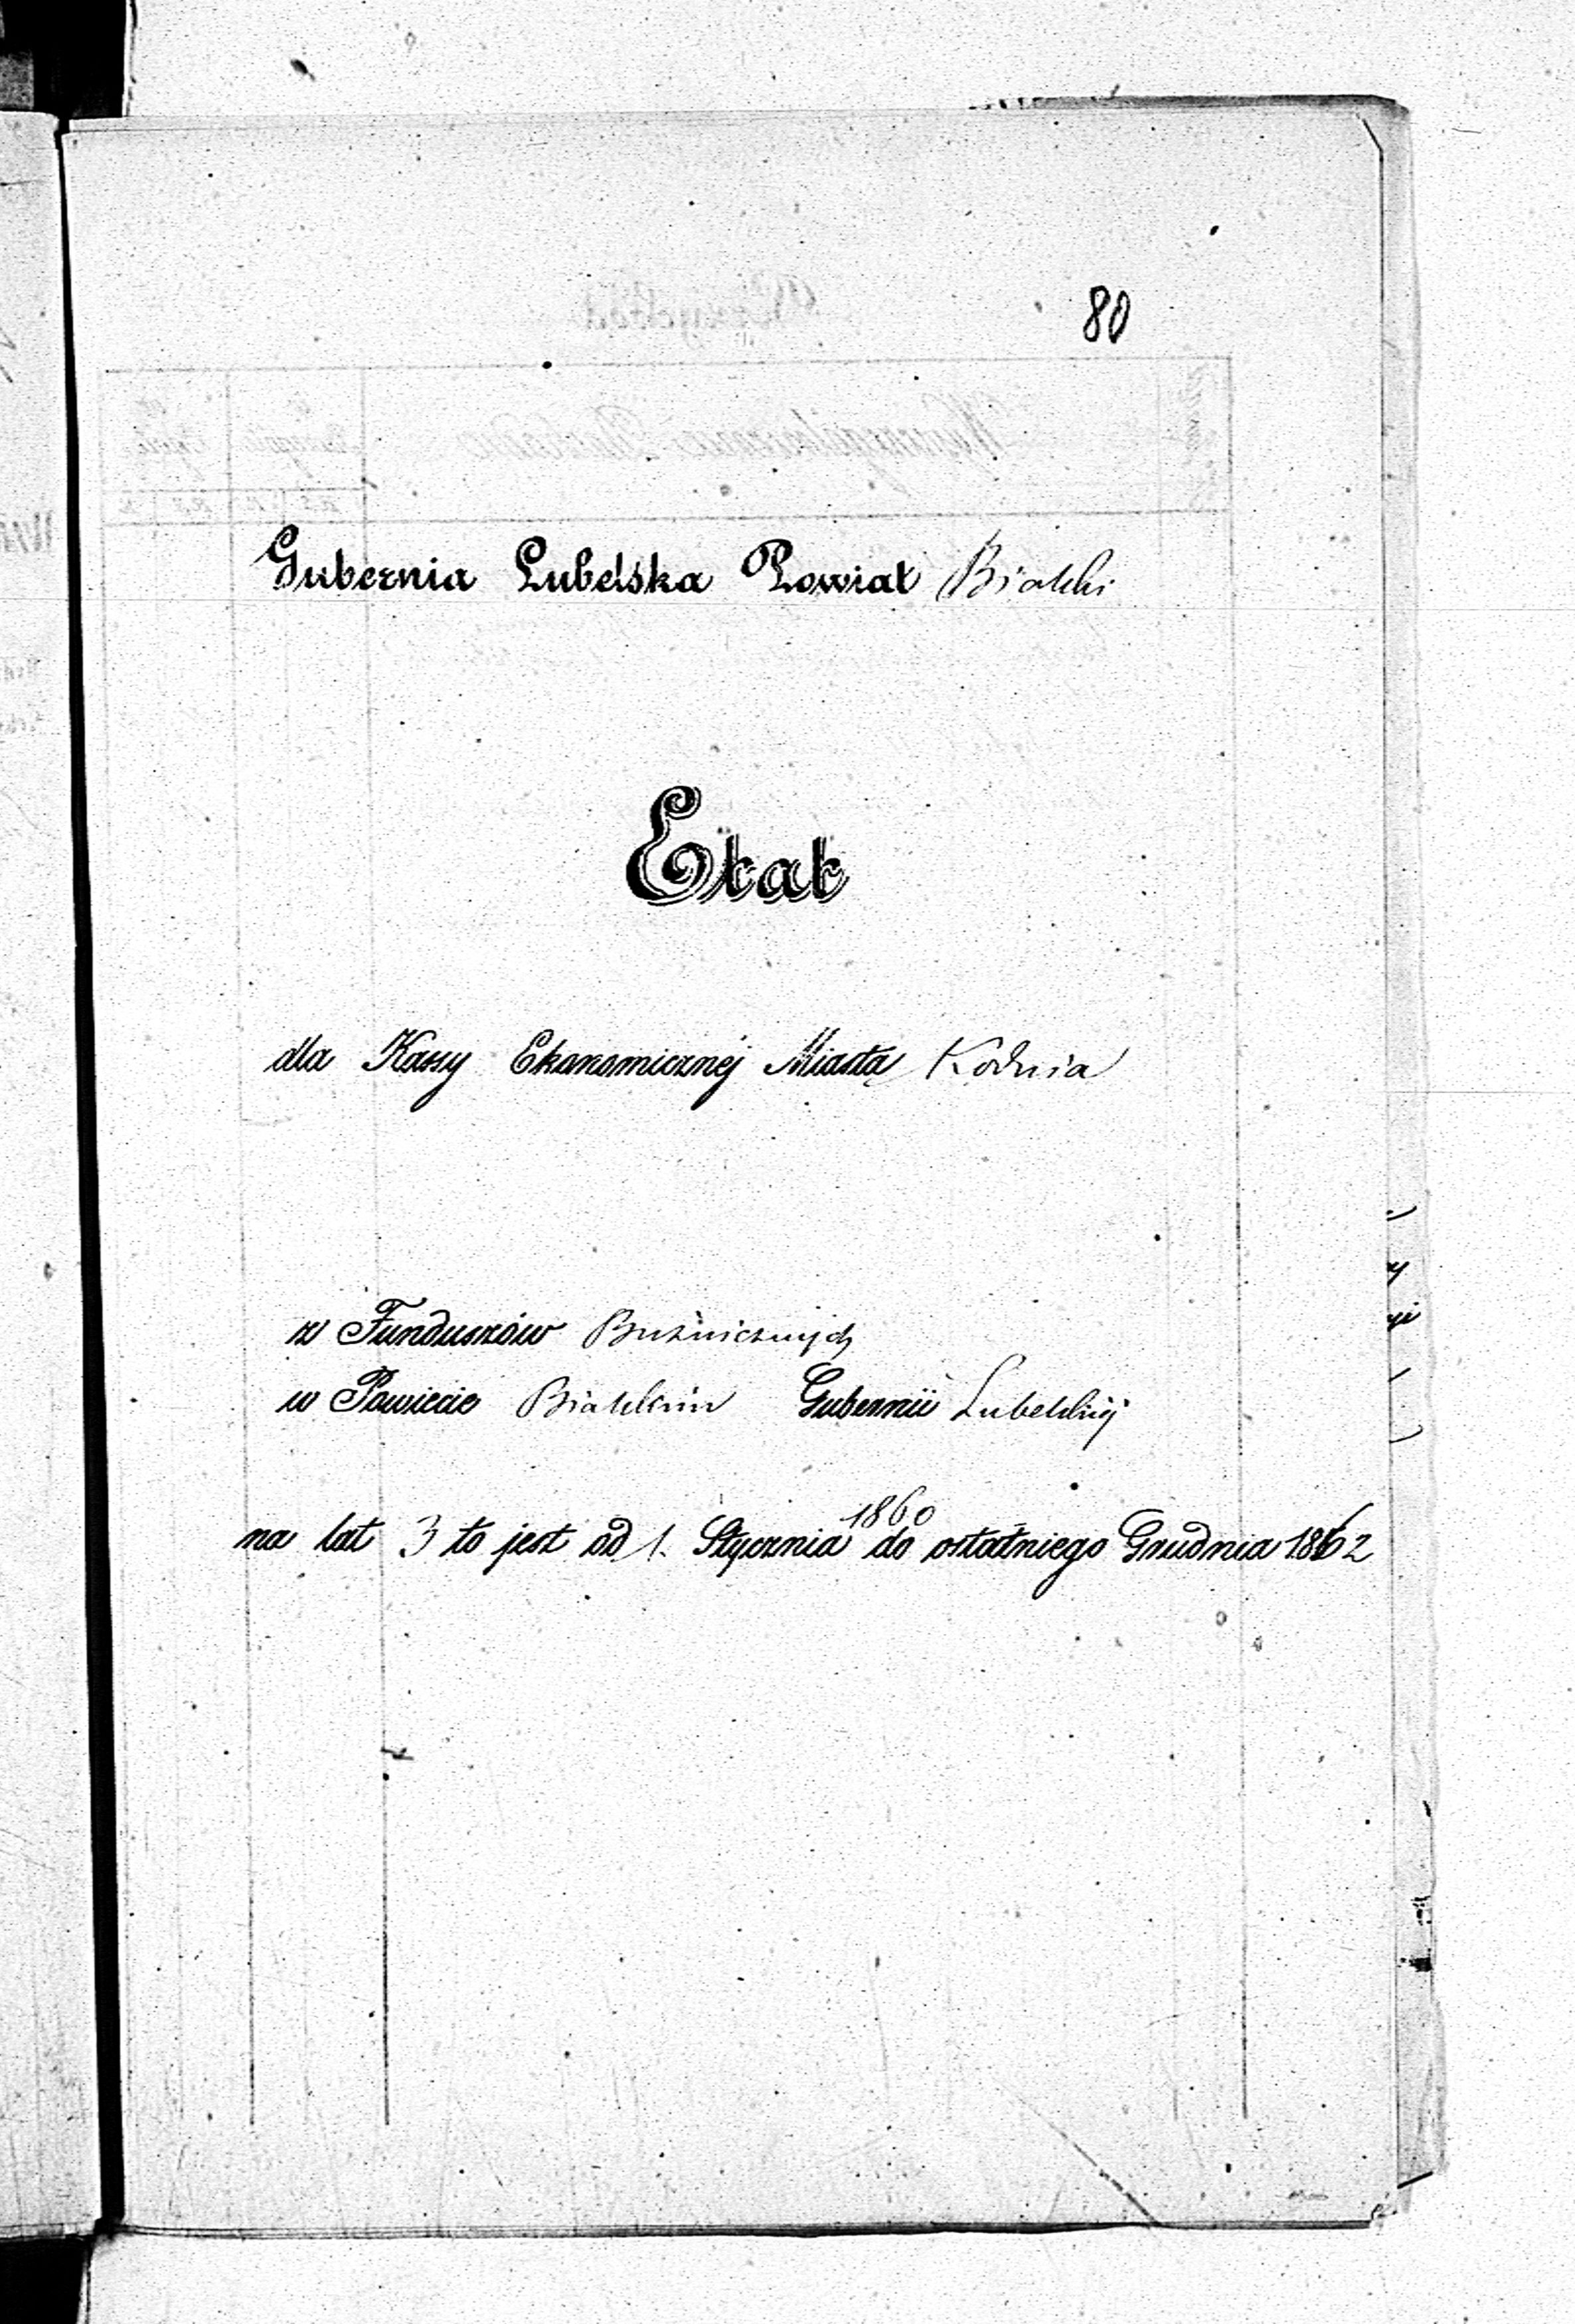 80
Gubernia Lubelska Powiat Bialski
Etat
dla Kassy Ekonomicznéj Miasta Kodnia
z Funduszów Bużnicznych
w Powiecie Bialskim Gubernii Lubelskiéj
1860
na lat 3 to jest od 1. Stycznia do ostatniego Grudnia 1862